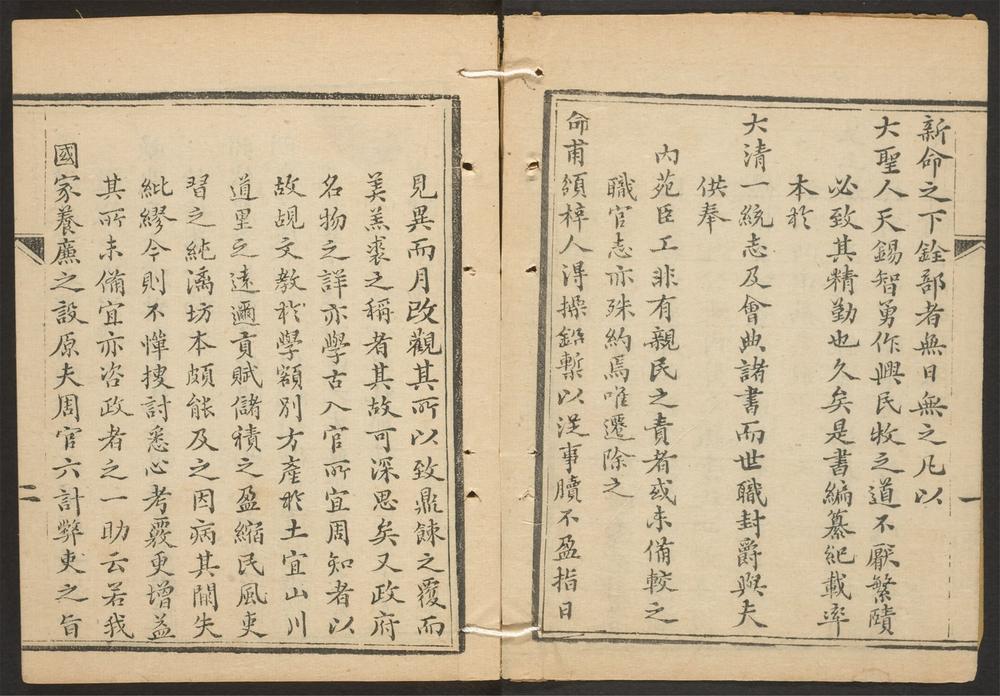 新命之下銓部者無日無之凡以
大聖人天錫智勇作興民牧之道不厭繁賾
必致其精勤也久矣是書編纂紀載率
本於
大清一統志及會典諸書而世職封爵與夫
供奉
內苑臣工非有親民之責者或未備較之
職官志亦殊約焉唯遷除之
命甫頒梓人得操鉛槧以從事牘不盈指日
一
見異而月改觀其所以致鼎餗之覆而
美羔裘之稱者其故可深思矣又政府
名物之詳亦學古入官所宜周知者以
故覘文教於學額別方產於土宜山川
道里之遠邇貢賦儲積之盈縮民風吏
習之純漓坊本頗能及之因病其闕失
紕繆今則不憚搜討悉心考覈更增益
其所未備宜亦咨政者之一助云若我
國家養廉之設原夫周官六計弊吏之旨
二